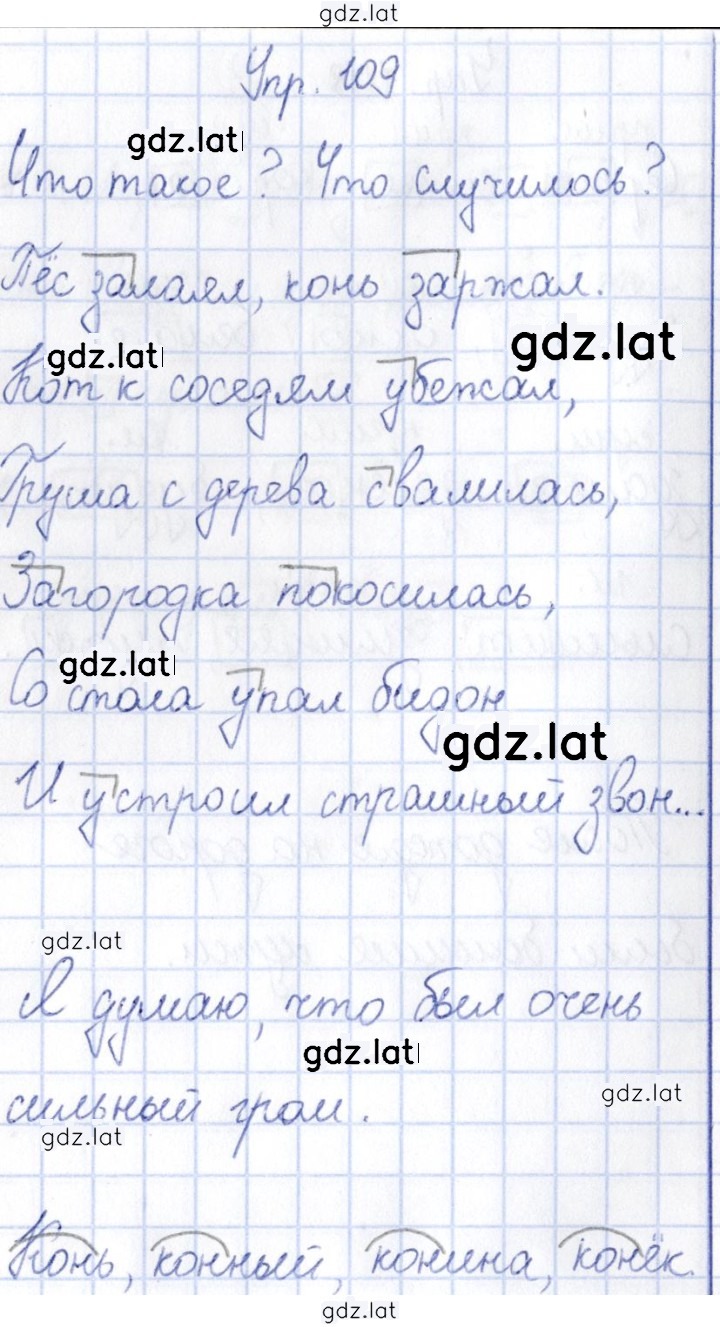 gdz.lat
Упр. 109
gdz.lat
Что такое? Что случилось?
Пёс залаял, конь заржал.
gdz.lat
gdz.lat
Кот к соседям убежал,
Груша с дерева свалилась,
Загородка покосилась,
gdz.lat
Со стола упал бидон
gdz.lat
И устроил страшный звон...
gdz.lat
Я думаю, что был очень
gdz.lat
gdz.lat
сильный гром.
gdz.lat
Конь, конный, конина, конёк.
gdz.lat